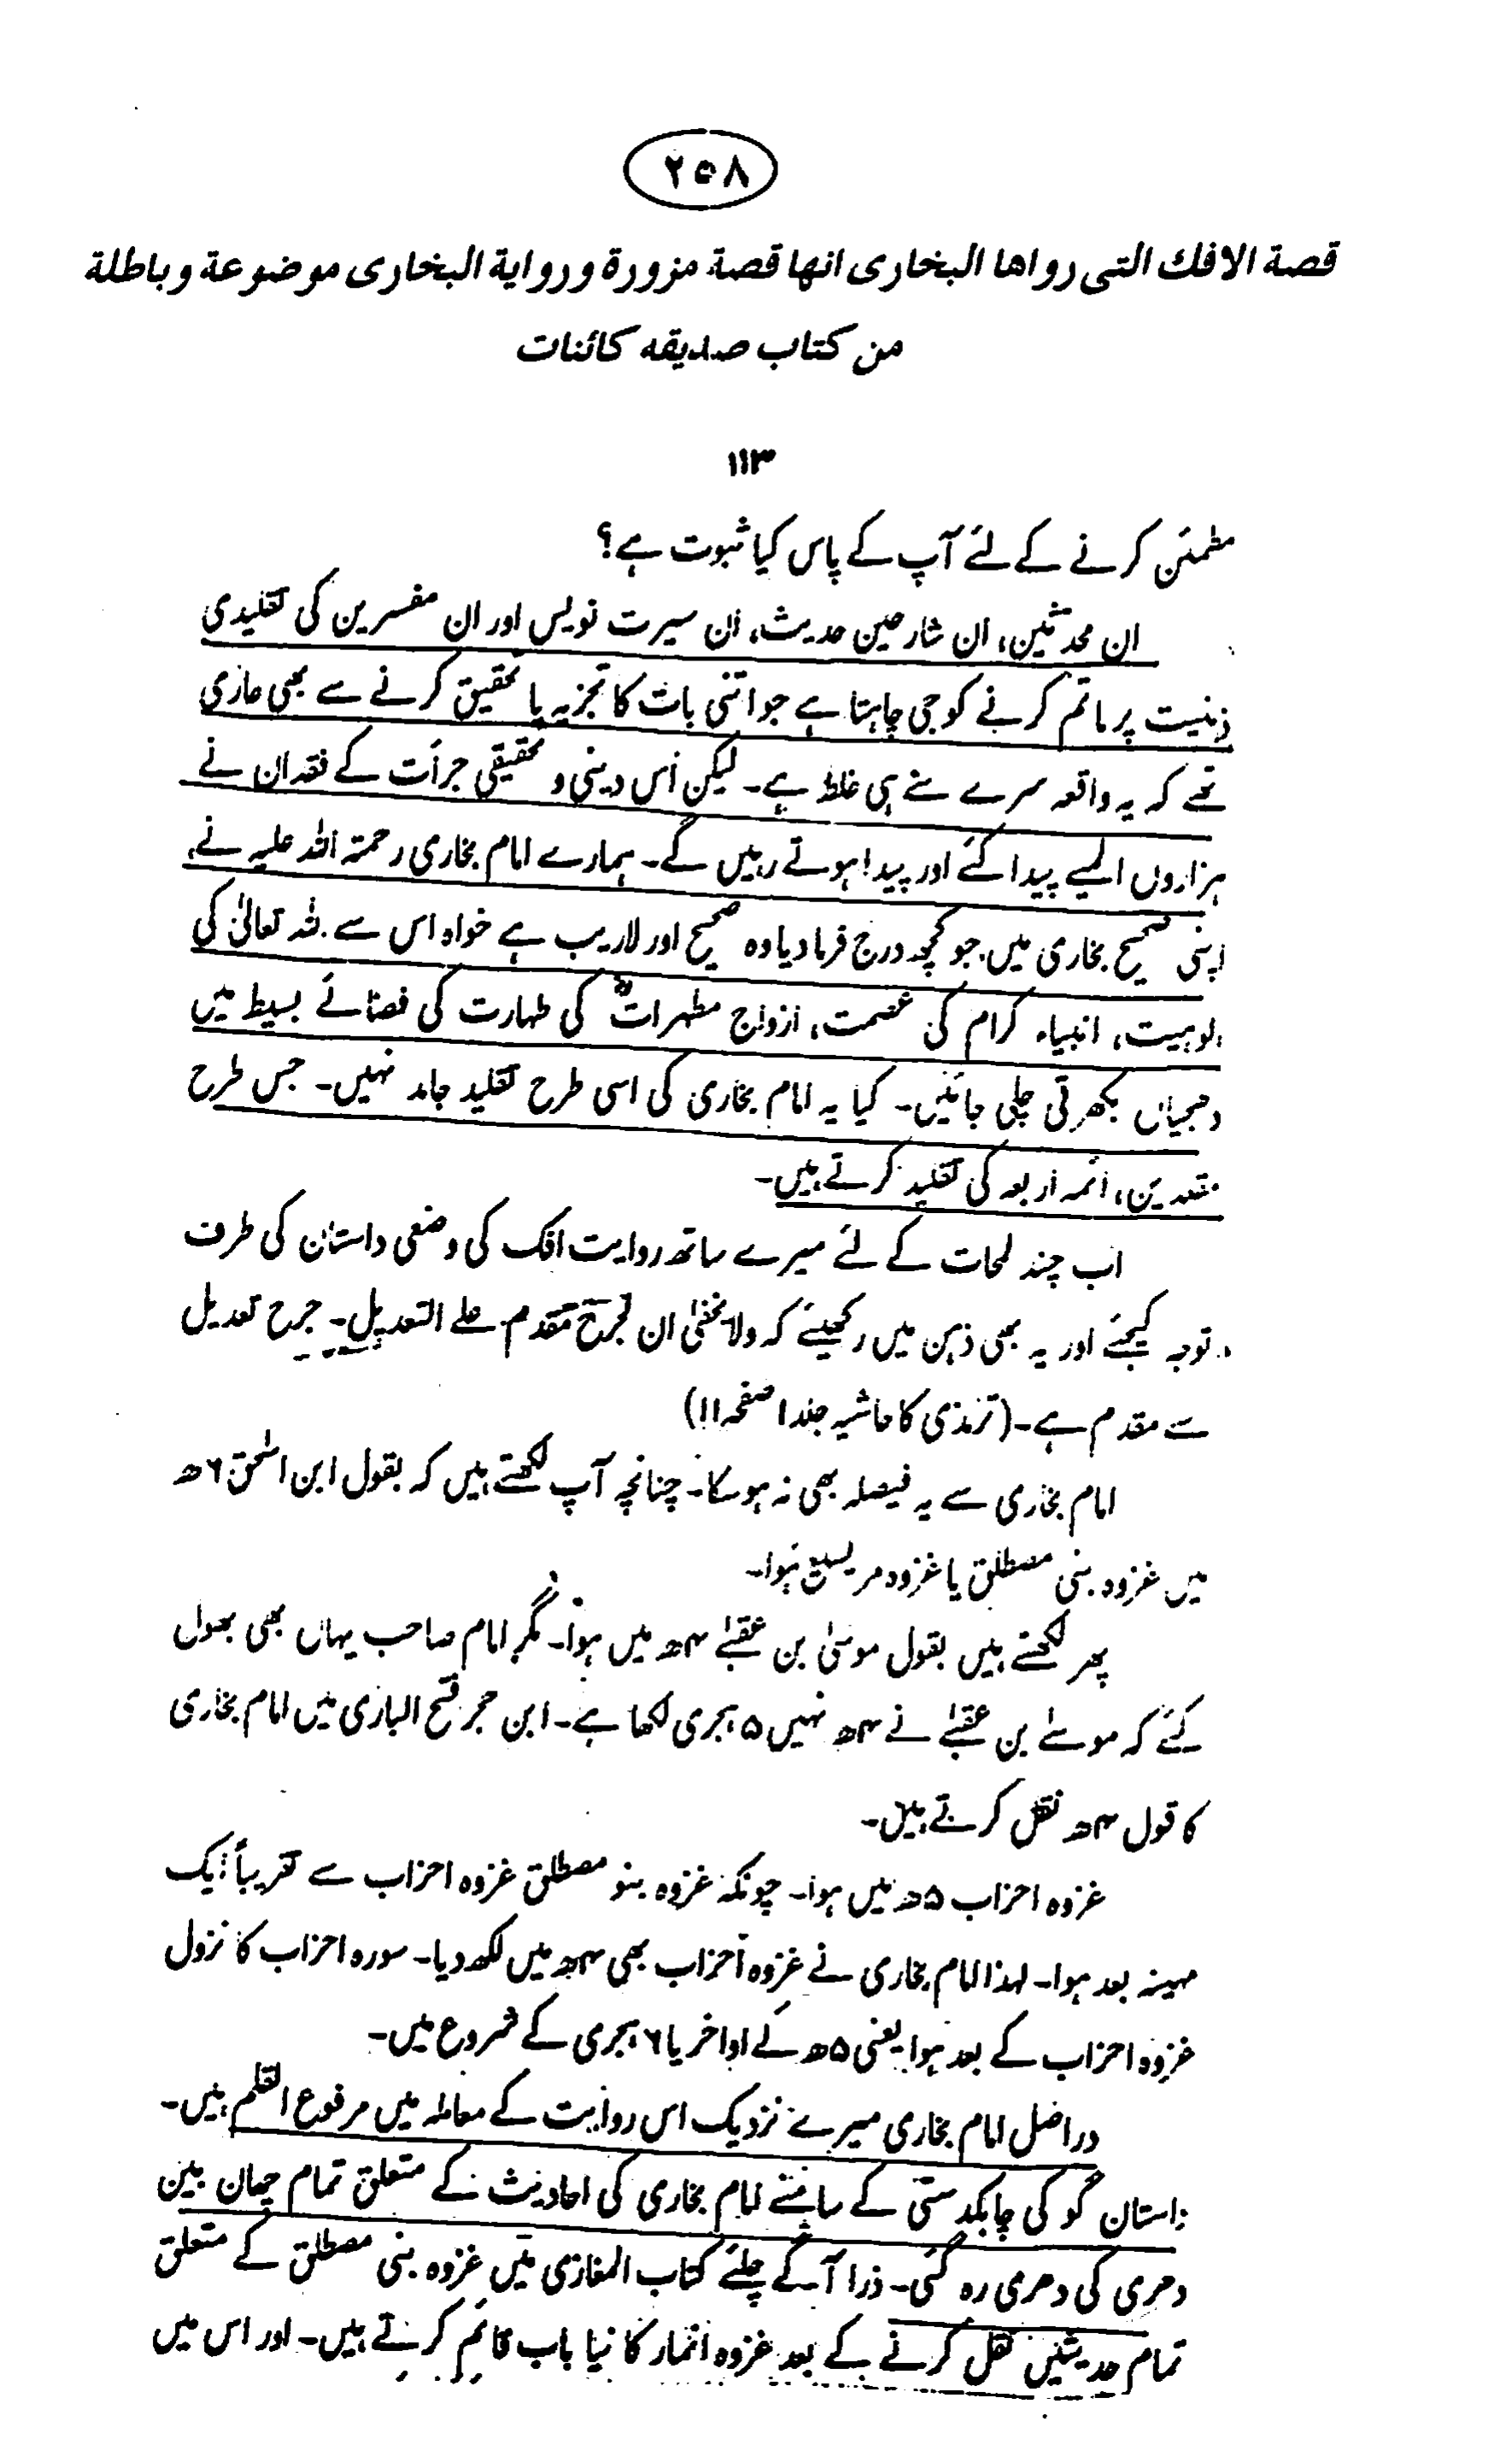 ۲۵۸
قصة الافك التى رواها البخارى انها قصة مزورة ورواية البخارى موضوعة وباطلة
من كتاب صديقه كائنات
۱۱۳
مطمئن کرنے کے لئے آپ کے پاس کیا ثبوت ہے؟
ان محدثین، ان شارحین حدیث، ان سیرت نویس اور ان مفسرین کی تقلیدی
ذہنیت پر ماتم کرنے کو جی چاہتا ہے جو اتنی بات کا تجزیہ یا تحقیق کرنے سے بھی عاری
تھے کہ یہ واقعہ سرے سے ہی غلط ہے۔ لیکن اس دینی و تحقیقی جرأت کے فقدان نے
ہزاروں المیے پیدا کئے اور پیدا ہوتے رہیں گے۔ ہمارے امام بخاری رحمتہ اللہ علیہ نے
اپنی صحیح بخاری میں جو کچھ درج فرما دیا وہ صحیح اور لاریب ہے خواہ اس سے اللہ تعالیٰ کی
الوہیت، انبیاء کرام کی عصمت، ازواج مطہراتؓ کی طہارت کی فضائے بسیط میں
دھجیاں بکھرتی چلی جائیں۔ کیا یہ امام بخاری کی اسی طرح تقلید جامد نہیں۔ جس طرح
مقلدین، ائمہ اربعہ کی تقلید کرتے ہیں۔
اب چند لمحات کے لئے میرے ساتھ روایت افک کی وضعی داستان کی طرف
توجہ کیجئے اور یہ بھی ذہن میں رکھیئے کہ ولا یخفیٰ ان لجرح مقدم علے التعدیل۔ جرح تعدیل
سے مقدم ہے۔ (ترمذی کا حاشیہ جلد ۱ صفحہ ۱۱)
امام بخاری سے یہ فیصلہ بھی نہ ہو سکا۔ چنانچہ آپ لکھتے ہیں کہ بقول ابن اسحٰق ۶ھ
میں غزوہ بنی مصطلق یا غزوہ مریسیع ہوا۔
پھر لکھتے ہیں بقول موسیٰ بن عقبہٰ ۴ھ میں ہوا۔ مگر امام صاحب یہاں بھی بھول
گئے کہ موسےٰ بن عقبہٰ نے ۴ھ نہیں ۵ ہجری لکھا ہے۔ ابن حجر فتح الباری میں امام بخاری
کا قول ۴ھ نقل کرتے ہیں۔
غزوہ احزاب ۵ھ میں ہوا۔ چونکہ غزوہ بنو مصطلق غزوہ احزاب سے تقریباً ایک
مہینہ بعد ہوا۔ لہذا امام بخاری نے غزوہ احزاب بھی ۴ھ میں لکھ دیا۔ سورہ احزاب کا نزول
غزوہ احزاب کے بعد ہوا یعنی ۵ھ کے اواخر یا ۶ ہجری کے شروع میں۔
دراصل امام بخاری میرے نزدیک اس روایت کے معاملہ میں مرفوع القلم ہیں۔
داستان گو کی چابکدستی کے سامنے امام بخاری کی احادیث کے متعلق تمام چھان بین
دھری کی دھری رہ گئی۔ ذرا آگے چلئے کتاب المغازی میں غزوہ بنی مصطلق کے متعلق
تمام حدیثیں نقل کرنے کے بعد غزوہ انمار کا نیا باب قائم کرتے ہیں۔ اور اس میں